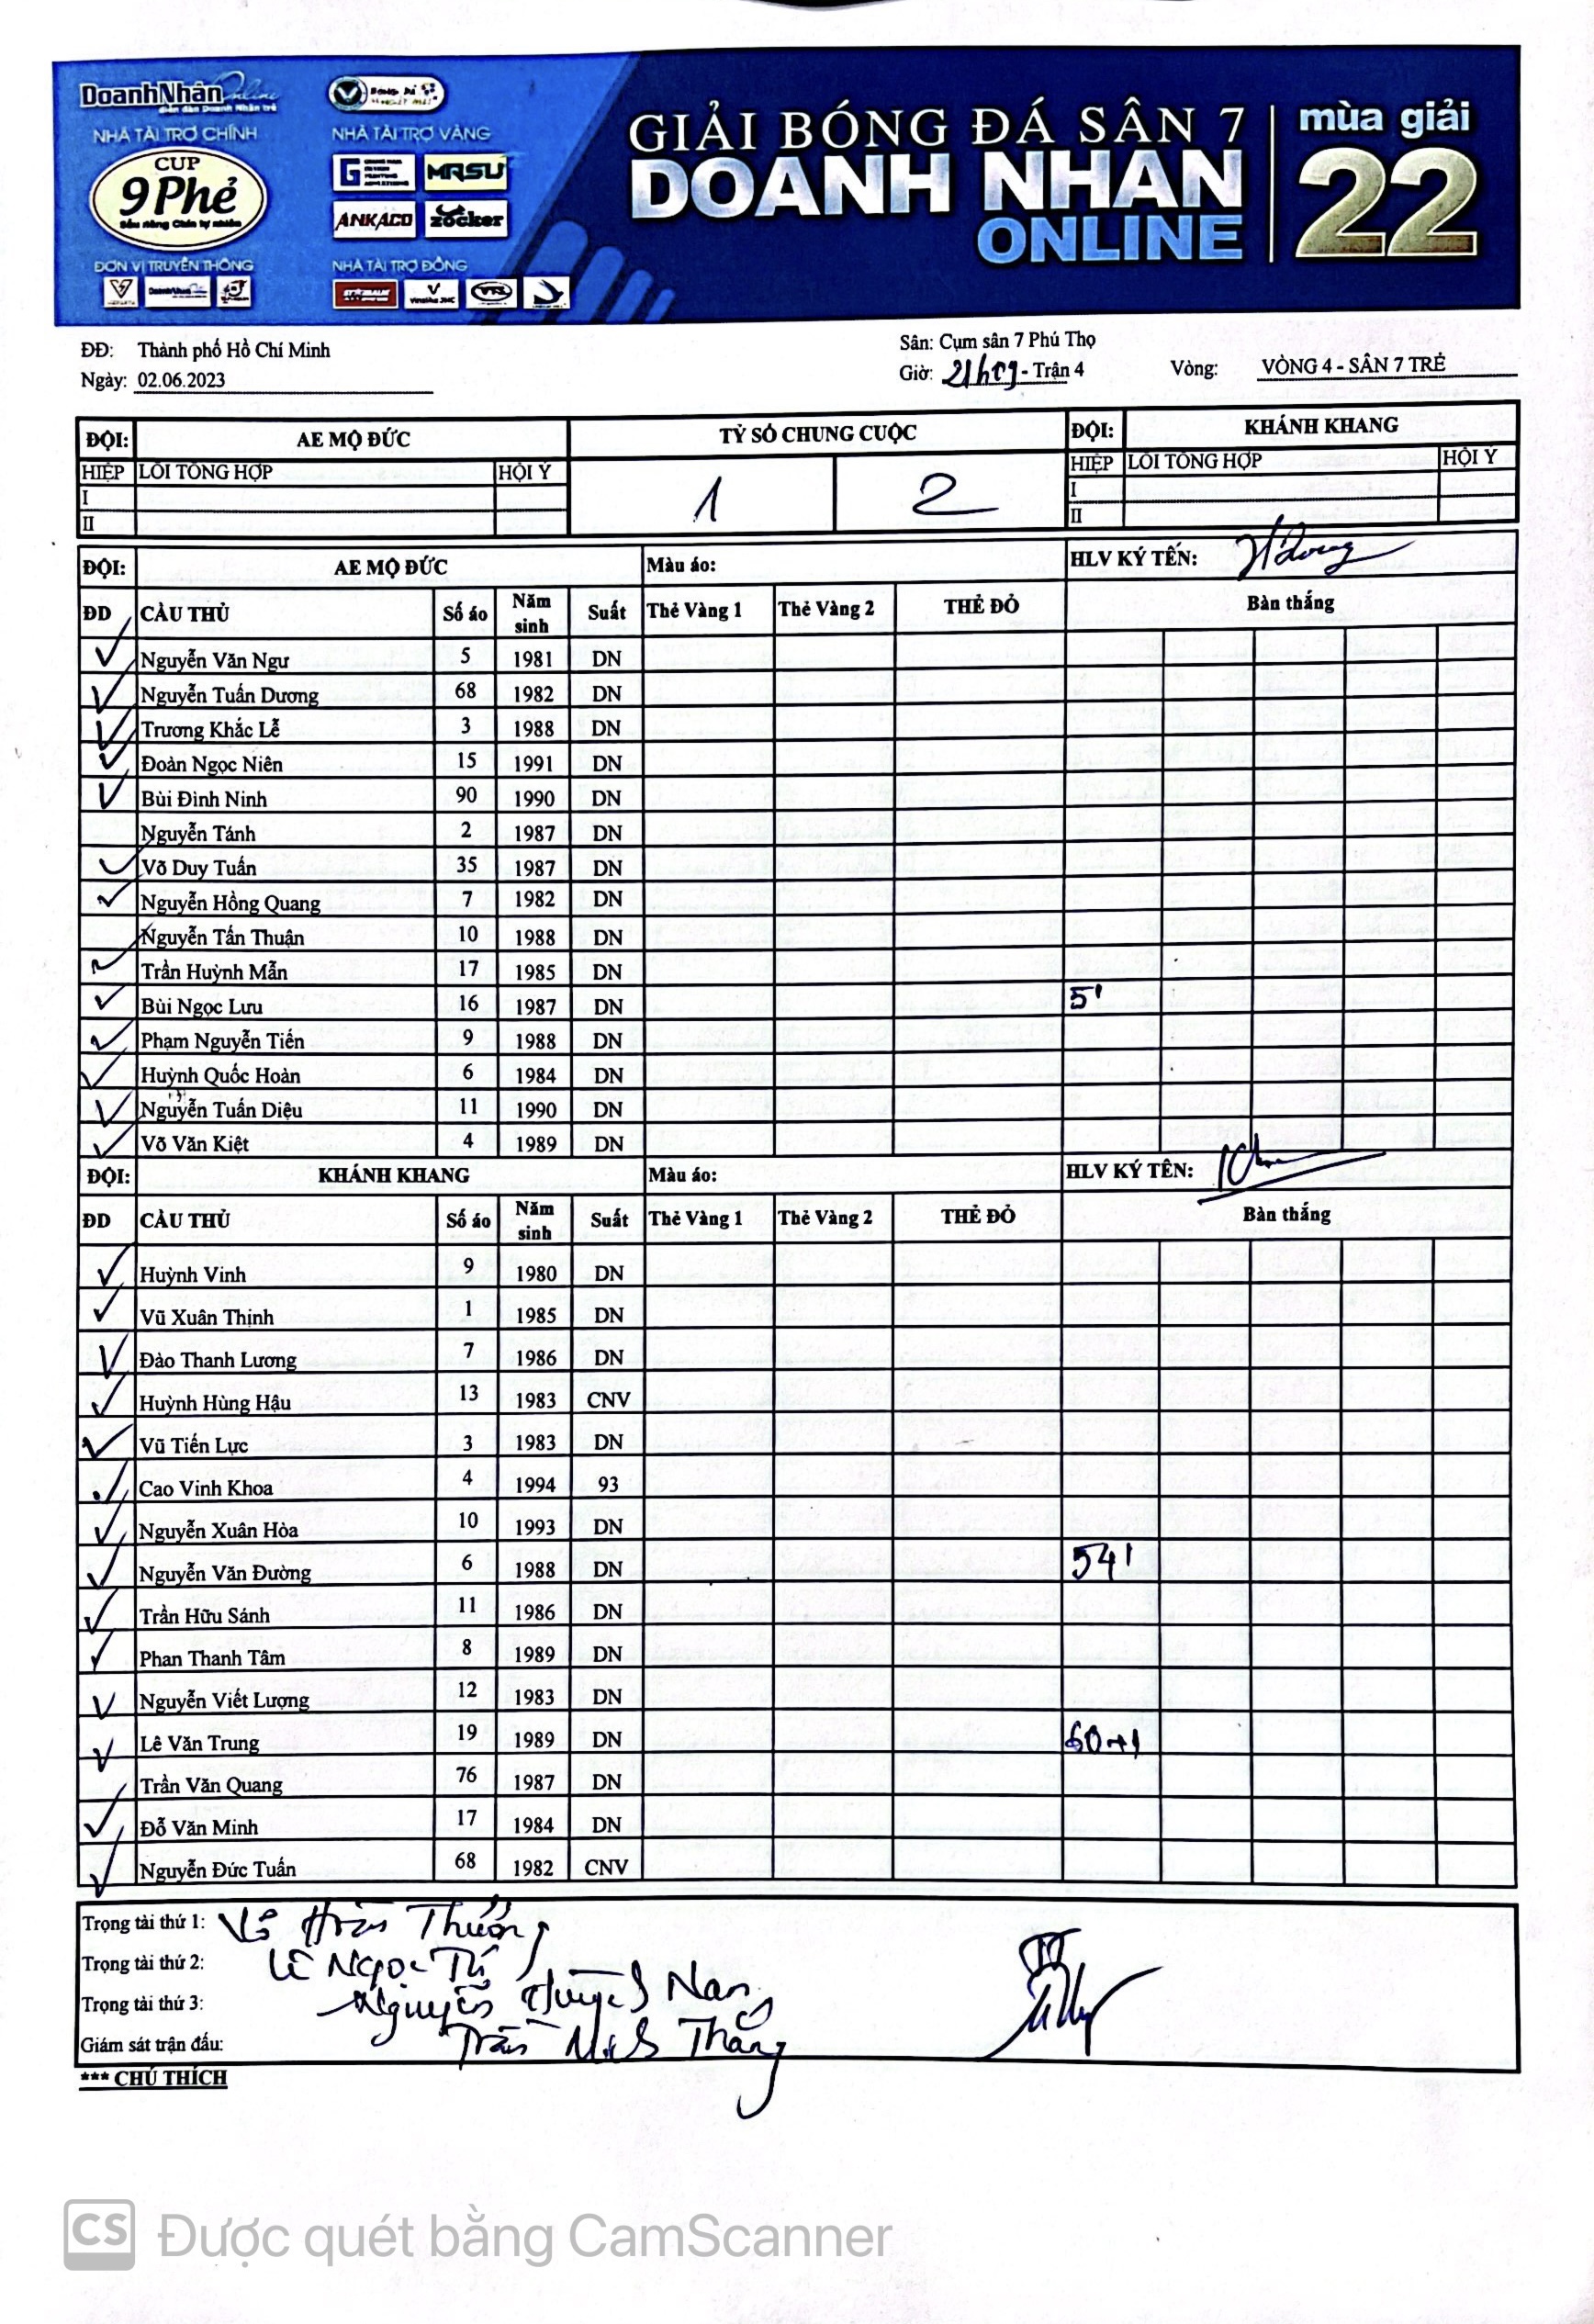 DoanhNhân Online
diễn đàn Doanh Nhân trẻ
NHÀ TÀI TRỢ CHÍNH
NHÀ TÀI TRỢ VÀNG
CUP
9 Phẻ
MRSU
ANKACO zocker
ĐƠN VỊ TRUYỀN THÔNG
NHÀ TÀI TRỢ ĐỒNG
GIẢI BÓNG ĐÁ SÂN 7
DOANH NHÂN
ONLINE
mùa giải
22
ĐĐ: Thành phố Hồ Chí Minh
Ngày: 02.06.2023
Sân: Cụm sân 7 Phú Thọ
Giờ: 21h09 - Trận 4
Vòng: VÒNG 4 - SÂN 7 TRẺ
ĐỘI: AE MỘ ĐỨC TỶ SỐ CHUNG CUỘC ĐỘI: KHÁNH KHANG
HIỆP LỖI TỔNG HỢP HỘI Ý 1 2 HIỆP LỖI TỔNG HỢP HỘI Ý
I I
II II
ĐỘI: AE MỘ ĐỨC Màu áo: HLV KÝ TÊN:
ĐD CẦU THỦ Số áo Năm sinh Suất Thẻ Vàng 1 Thẻ Vàng 2 THẺ ĐỎ Bàn thắng
Nguyễn Văn Ngư 5 1981 DN
Nguyễn Tuấn Dương 68 1982 DN
Trương Khắc Lễ 3 1988 DN
Đoàn Ngọc Niên 15 1991 DN
Bùi Đình Ninh 90 1990 DN
Nguyễn Tánh 2 1987 DN
Võ Duy Tuấn 35 1987 DN
Nguyễn Hồng Quang 7 1982 DN
Nguyễn Tấn Thuận 10 1988 DN
Trần Huỳnh Mẫn 17 1985 DN
Bùi Ngọc Lưu 16 1987 DN 5'
Phạm Nguyễn Tiến 9 1988 DN
Huỳnh Quốc Hoàn 6 1984 DN
Nguyễn Tuấn Diệu 11 1990 DN
Võ Văn Kiệt 4 1989 DN
ĐỘI: KHÁNH KHANG Màu áo: HLV KÝ TÊN:
ĐD CẦU THỦ Số áo Năm sinh Suất Thẻ Vàng 1 Thẻ Vàng 2 THẺ ĐỎ Bàn thắng
Huỳnh Vinh 9 1980 DN
Vũ Xuân Thịnh 1 1985 DN
Đào Thanh Lương 7 1986 DN
Huỳnh Hùng Hậu 13 1983 CNV
Vũ Tiến Lực 3 1983 DN
Cao Vinh Khoa 4 1994 93
Nguyễn Xuân Hòa 10 1993 DN
Nguyễn Văn Đường 6 1988 DN 54'
Trần Hữu Sánh 11 1986 DN
Phan Thanh Tâm 8 1989 DN
Nguyễn Viết Lượng 12 1983 DN
Lê Văn Trung 19 1989 DN 60+1
Trần Văn Quang 76 1987 DN
Đỗ Văn Minh 17 1984 DN
Nguyễn Đức Tuấn 68 1982 CNV
Trọng tài thứ 1:
Trọng tài thứ 2: Lê Ngọc Tú
Trọng tài thứ 3: Nguyễn Huỳnh Nam
Giám sát trận đấu: Trần Minh Thắng
*** CHÚ THÍCH
CS Được quét bằng CamScanner